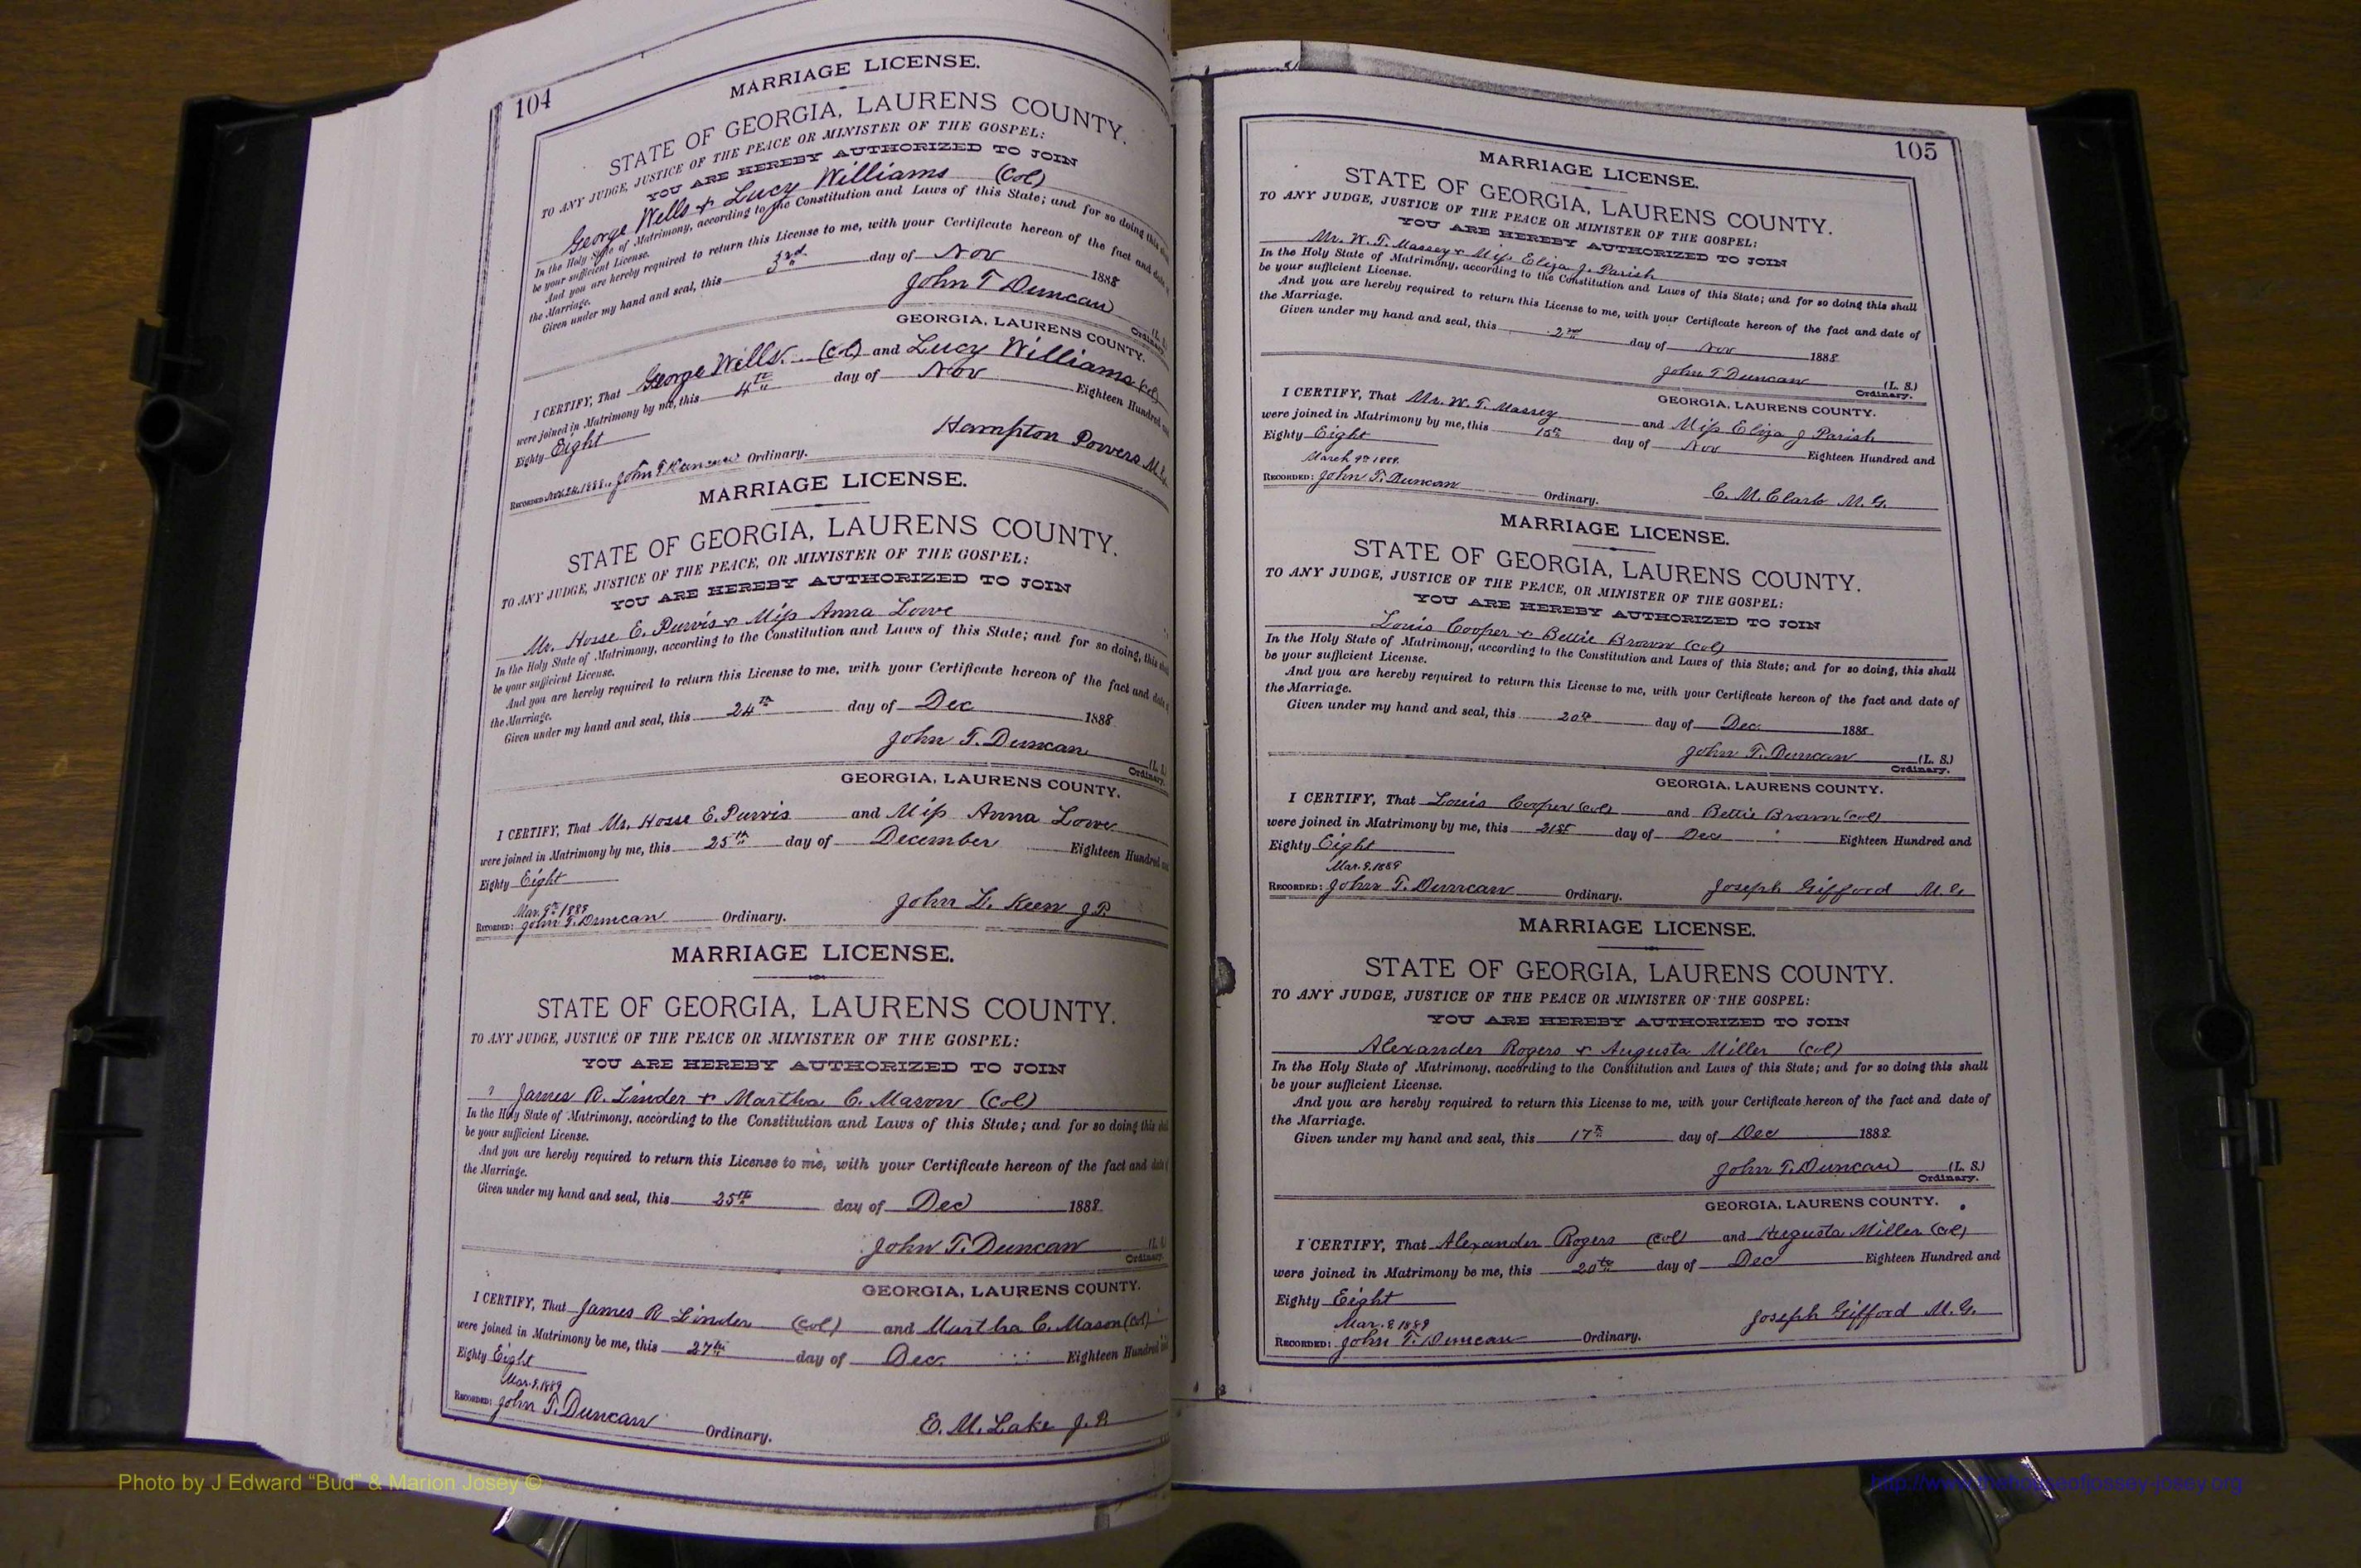 104
MARRIAGE LICENSE.
STATE OF GEORGIA, LAURENS COUNTY.
TO ANY JUDGE, JUSTICE OF THE PEACE OR MINISTER OF THE GOSPEL:
YOU ARE HEREBY AUTHORIZED TO JOIN
George Wells & Lucy Williams (Col)
In the Holy State of Matrimony, according to the Constitution and Laws of this State; and for so doing this
be your sufficient License.
And you are hereby required to return this License to me, with your Certificate hereon of the fact and date
the Marriage.
Given under my hand and seal, this 3rd day of Nov 1888
John T Duncan (L.
Ordinary.
GEORGIA, LAURENS COUNTY.
I CERTIFY, That George Wells. (Col) and Lucy Williams (Col)
were joined in Matrimony by me, this 4th day of Nov Eighteen Hundred
Eighty Eight
Hampton Powers M.G.
RECORDED John T. Duncan Ordinary.
MARRIAGE LICENSE.
STATE OF GEORGIA, LAURENS COUNTY.
TO ANY JUDGE, JUSTICE OF THE PEACE, OR MINISTER OF THE GOSPEL:
YOU ARE HEREBY AUTHORIZED TO JOIN
Mr. Hosse E. Purvis & Miss Anna Lowe
In the Holy State of Matrimony, according to the Constitution and Laws of this State; and for so doing, this
be your sufficient License.
And you are hereby required to return this License to me, with your Certificate hereon of the fact and date
the Marriage.
Given under my hand and seal, this 24th day of Dec 1888
John T. Duncan (L.
Ordinary.
GEORGIA, LAURENS COUNTY.
I CERTIFY, That Mr. Hosse E. Purvis and Miss Anna Lowe
were joined in Matrimony by me, this 25th day of December Eighteen Hundred
Eighty Eight
Mar. 9th 1889
John L. Keen J P.
RECORDED: John T. Duncan Ordinary.
MARRIAGE LICENSE.
STATE OF GEORGIA, LAURENS COUNTY.
TO ANY JUDGE, JUSTICE OF THE PEACE OR MINISTER OF THE GOSPEL:
YOU ARE HEREBY AUTHORIZED TO JOIN
James R. Linder & Martha C. Mason (Col)
In the Holy State of Matrimony, according to the Constitution and Laws of this State; and for so doing this
be your sufficient License.
And you are hereby required to return this License to me, with your Certificate hereon of the fact and date
the Marriage.
Given under my hand and seal, this 25th day of Dec 1888
John T. Duncan (L.
Ordinary.
GEORGIA, LAURENS COUNTY.
I CERTIFY, That James R Linder (Col) and Martha C. Mason (Col)
were joined in Matrimony be me, this 27th day of Dec. Eighteen Hundred
Eighty Eight
Mar. 9, 1889
RECORDED: John T. Duncan Ordinary.
E. M. Lake J. P.
105
MARRIAGE LICENSE.
STATE OF GEORGIA, LAURENS COUNTY.
TO ANY JUDGE, JUSTICE OF THE PEACE OR MINISTER OF THE GOSPEL:
YOU ARE HEREBY AUTHORIZED TO JOIN
Mr. W. T. Massey & Miss Eliza J. Parish
In the Holy State of Matrimony, according to the Constitution and Laws of this State; and for so doing this shall
be your sufficient License.
And you are hereby required to return this License to me, with your Certificate hereon of the fact and date of
the Marriage.
Given under my hand and seal, this 2nd day of Nov 1888
John T Duncan (L. S.)
Ordinary.
GEORGIA, LAURENS COUNTY.
I CERTIFY, That Mr. W. T. Massey and Miss Eliza J Parish
were joined in Matrimony by me, this 15th day of Nov Eighteen Hundred and
Eighty Eight
March 9th 1889.
RECORDED: John T. Duncan Ordinary.
C. M. Clark M. G.
MARRIAGE LICENSE.
STATE OF GEORGIA, LAURENS COUNTY.
TO ANY JUDGE, JUSTICE OF THE PEACE, OR MINISTER OF THE GOSPEL:
YOU ARE HEREBY AUTHORIZED TO JOIN
Louis Cooper & Bettie Brown (Col)
In the Holy State of Matrimony, according to the Constitution and Laws of this State; and for so doing, this shall
be your sufficient License.
And you are hereby required to return this License to me, with your Certificate hereon of the fact and date of
the Marriage.
Given under my hand and seal, this 20th day of Dec. 1888
John T. Duncan (L. S.)
Ordinary.
GEORGIA, LAURENS COUNTY.
I CERTIFY, That Louis Cooper (Col) and Bettie Brown (Col)
were joined in Matrimony by me, this 21st day of Dec Eighteen Hundred and
Eighty Eight
Mar. 9, 1889
RECORDED: John T. Duncan Ordinary.
Joseph Gifford M. G.
MARRIAGE LICENSE.
STATE OF GEORGIA, LAURENS COUNTY.
TO ANY JUDGE, JUSTICE OF THE PEACE OR MINISTER OF THE GOSPEL:
YOU ARE HEREBY AUTHORIZED TO JOIN
Alexander Rogers & Augusta Miller (Col)
In the Holy State of Matrimony, according to the Constitution and Laws of this State; and for so doing this shall
be your sufficient License.
And you are hereby required to return this License to me, with your Certificate hereon of the fact and date of
the Marriage.
Given under my hand and seal, this 17th day of Dec 1888
John T. Duncan (L. S.)
Ordinary.
GEORGIA, LAURENS COUNTY.
I CERTIFY, That Alexander Rogers (Col) and Augusta Miller (Col)
were joined in Matrimony be me, this 20th day of Dec Eighteen Hundred and
Eighty Eight
Mar. 9 1889
Joseph Gifford M. G.
RECORDED: John T. Duncan Ordinary.
Photo by J Edward “Bud” & Marion Josey ©
http://www.thehouseofjossey-josey.org